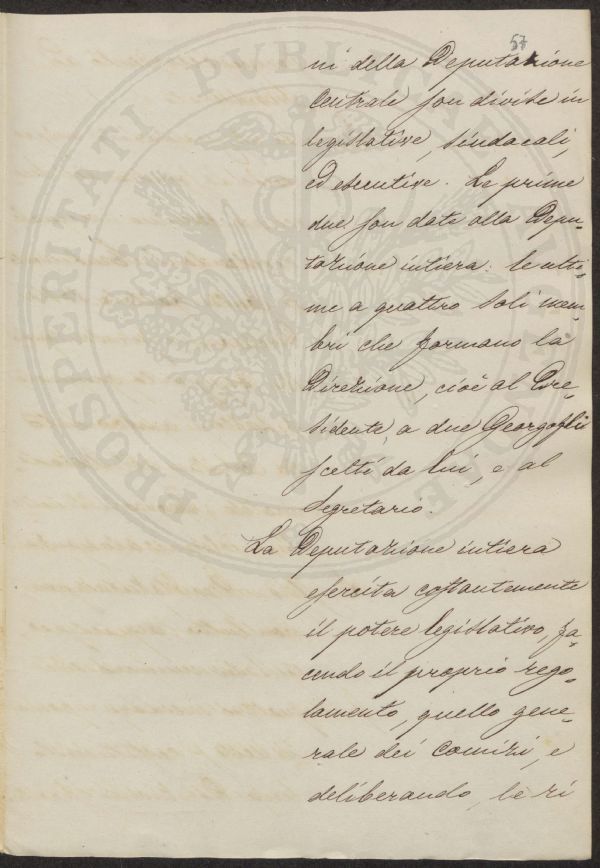 57
ni della Deputazione
Centrale son divise in
legislative, sindacali,
ed esecutive. Le prime
due son date alla Depu-
tazione intiera: le ulti-
me a quattro soli mem-
bri che formano la
Direzione, cioè al Pre-
sidente, a due Georgofili
scelti da lui, e al
Segretario.
La Deputazione intiera
esercita costantemente
il potere legislativo, fa-
cendo il proprio rego-
lamento, quello gene-
rale dei comizi, e
deliberando, le ri
PROSPERITATI PVBLICAE AVGENDAE